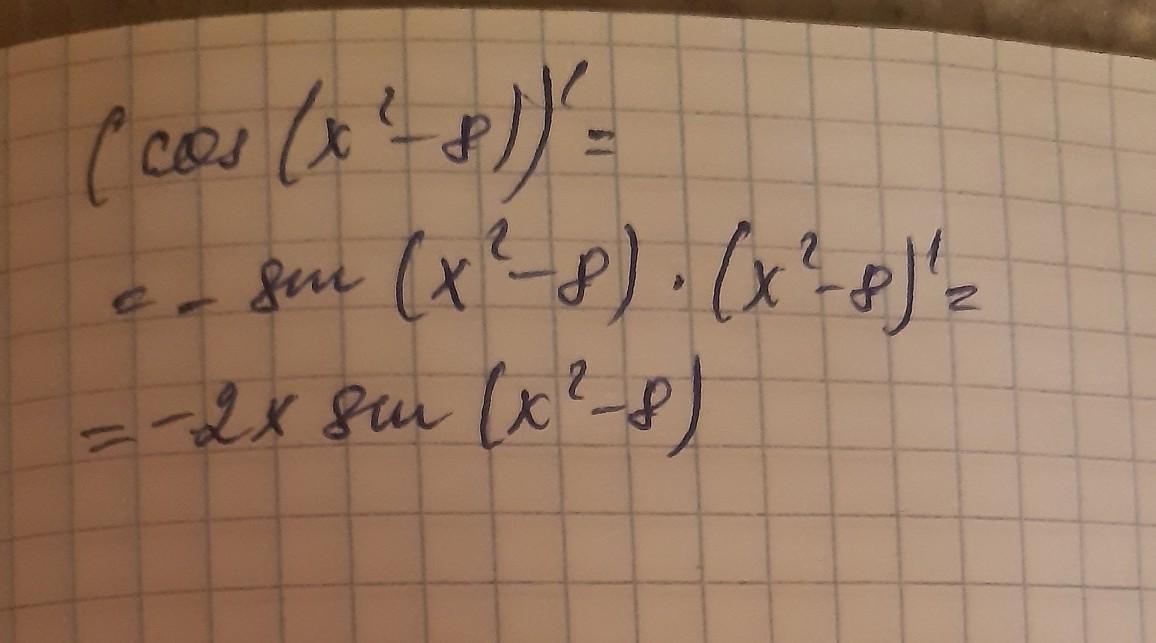 (cos(x²-8))'=
=-sin(x²-8)·(x²-8)'=
=-2x sin(x²-8)